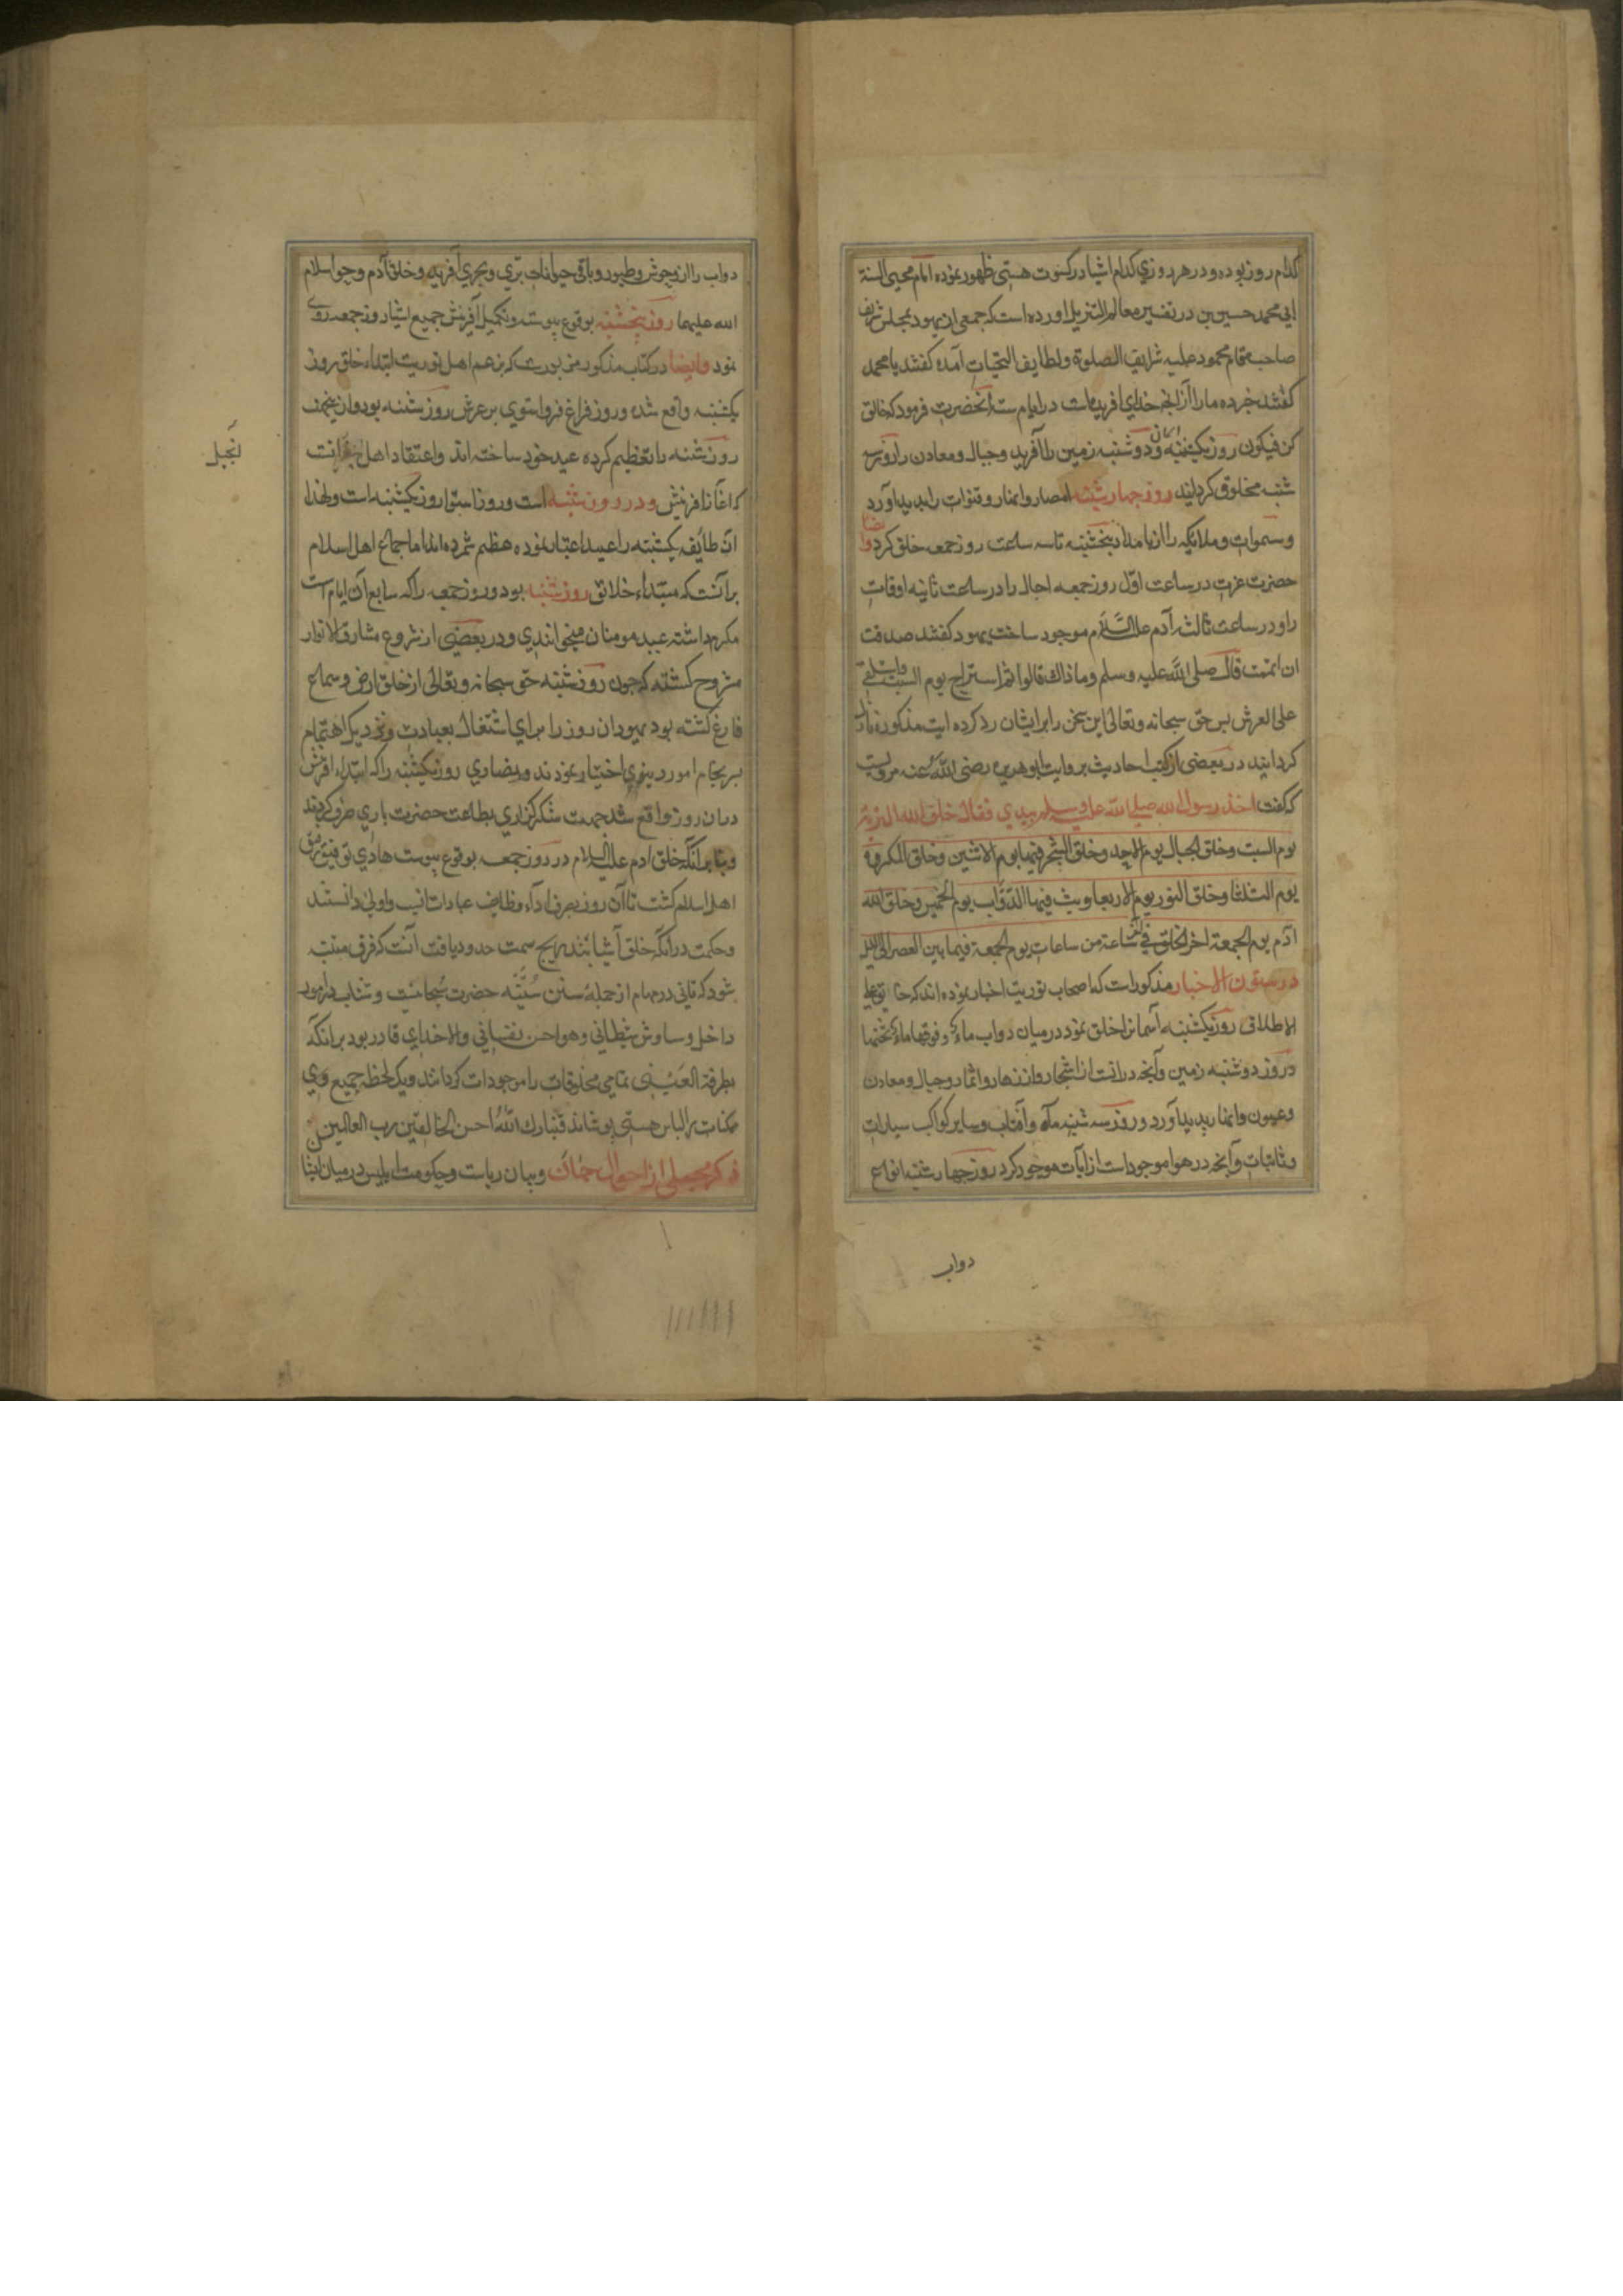 کدام روز بوده و در هر روزی کدام اشیا در کسوت هستی ظهور نموده امام محیی السنة
ابی محمد حسین بن در تفسیر معالم التنزیل اورده است که جمعی از یهود بمجلس شریف
صاحب مقام محمود علیه شرایف الصلوة ولطایف التحیات آمده کفتند یا محمد
کفتند خبر ده ما را از آنچه خدای افریده است در ایام ستة انحضرت فرمود که خالق
کن فیکون روز یکشنبه و دوشنبه زمین را آفرید وجبال ومعادن را روز سه
شنبه مخلوق کردانید روز چهار شنبه امصار وانهار وقنوات را پدید آورد
وسموات وملایکه را از بامداد پنجشنبه تا سه ساعت روز جمعه خلق کرد وایضا
حضرت عزت در ساعت اوّل روز جمعه اجال را در ساعت ثانیه اوقات
را ودر ساعت ثالثه آدم علیه السَّلام موجود ساخت یهود کفتند صدقت
ان اتممت قال صلی اللّه علیه وسلم وما ذاک قالوا ثم استراح یوم السبت واستلقی
علی العرش پس حق سبحانه وتعالی این سخن را بر ایشان رد کرده ایت مذکوره نازل
کردانید در بعضی از کتب احادیث بروایت ابو هریره رضی اللّه عنه مرویست
که کفت اخذ رسول الله صلی الله علیه وسلم بیدی فقال خلق الله التربة
یوم السبت وخلق الجبال یوم الاحد وخلق الشجر فیها یوم الاثنین وخلق المکروه
یوم الثلثا وخلق النور یوم الاربعا وبث فیها الدّوّاب یوم الخمیس وخلق الله
آدم یوم الجمعة اخر الخلق فی آخر ساعة من ساعات یوم الجمعة فیما بین العصر الی اللیل
در ستون الاخبار مذکور است که اصحاب توریت اخبار نموده اند که خالق علی
الاطلاق روز یکشنبه آسمانرا خلق نمود در میان دواب ماء وفوقها ماء تحتها
در روز دوشنبه زمین وآنچه در انست از اشجار وازهار واثمار وجبال ومعادن
وعیون وانهار پدید آورد و روز سه شنبه ماه وآفتاب وسایر کواکب سیارات
وثابتات وآنچه در هوا موجود است از ایات موجود کرد روز چهار شنبه انواع
دواب
دواب را از وحوش وطیور وباقی حیوانات برّی وبحری آفریده وخلق آدم وحوا سلام
الله علیهما روز پنجشنبه بوقوع پیوسته وتکمیل آفرینش جمیع اشیا روز جمعه روی
نمود وایضا در کتاب مذکور مزبورست که بزعم اهل توریت ابتداء خلق روز
یکشنبه واقع شده وروز فراغ فرو استوی بر عرش روز شنبه بود وازینجهت
روز شنبه را تعظیم کرده عید خود ساخته اند واعتقاد اهل انست
انجیل
که اغاز افرینش در روز شنبه است وروز استوا روز یکشنبه است ولهذا
ان طایفه یکشنبه را عید اعتبار نموده عظیم شمرده اند اما جماع اهل اسلام
بر آنست که مبتداء خلائق روز شنبه بود وروز جمعه را که سابع آن ایام است
مکرم داشته عید مومنان میخوانندی ودر بعضی از شروع مشارق الانوار
مشروح کشته که چون روز شنبه حق سبحانه وتعالی از خلق ارض وسماع
فارغ کشته بود یهود ان روز را برای اشتغال بعبادت اهتمام
امور دینوی اختیار نمودند ونصاری روز یکشنبه را که ابتداء افرینش
در ان روز واقع شد جهت شکر گزاری بطاعت حضرت باری صرف کردند
وبنا بر آنکه خلق ادم علیه السلام در روز جمعه بوقوع پیوست هادی توفیق رفیق
اهل اسلام کشت تا آن روز بصرف اداء وظایف عبادات انسب واولی دانستند
وحکمت در آنکه خلق اشیا بتدریج سمت حدود یافت آنست که فرق منتبه
شود که تانی در مهام از جمله سنن سُنّیّه حضرت سُبحانیست وشتاب در امور
داخل وساوس شیطانی وهواجس نفسانی والا خدای قادر بود بر انکه
بطرفة العَیْنی تمامی مخلوقات را موجودات کرداند ویک لحظه جمیع
ممکنات را لباس هستی پوشاند فتبارک اللّهُ احسن الخالقین رب العالمین
ذکر مجملی از احوال جان وبیان ریاست وحکومت ابلیس در میان ایشان